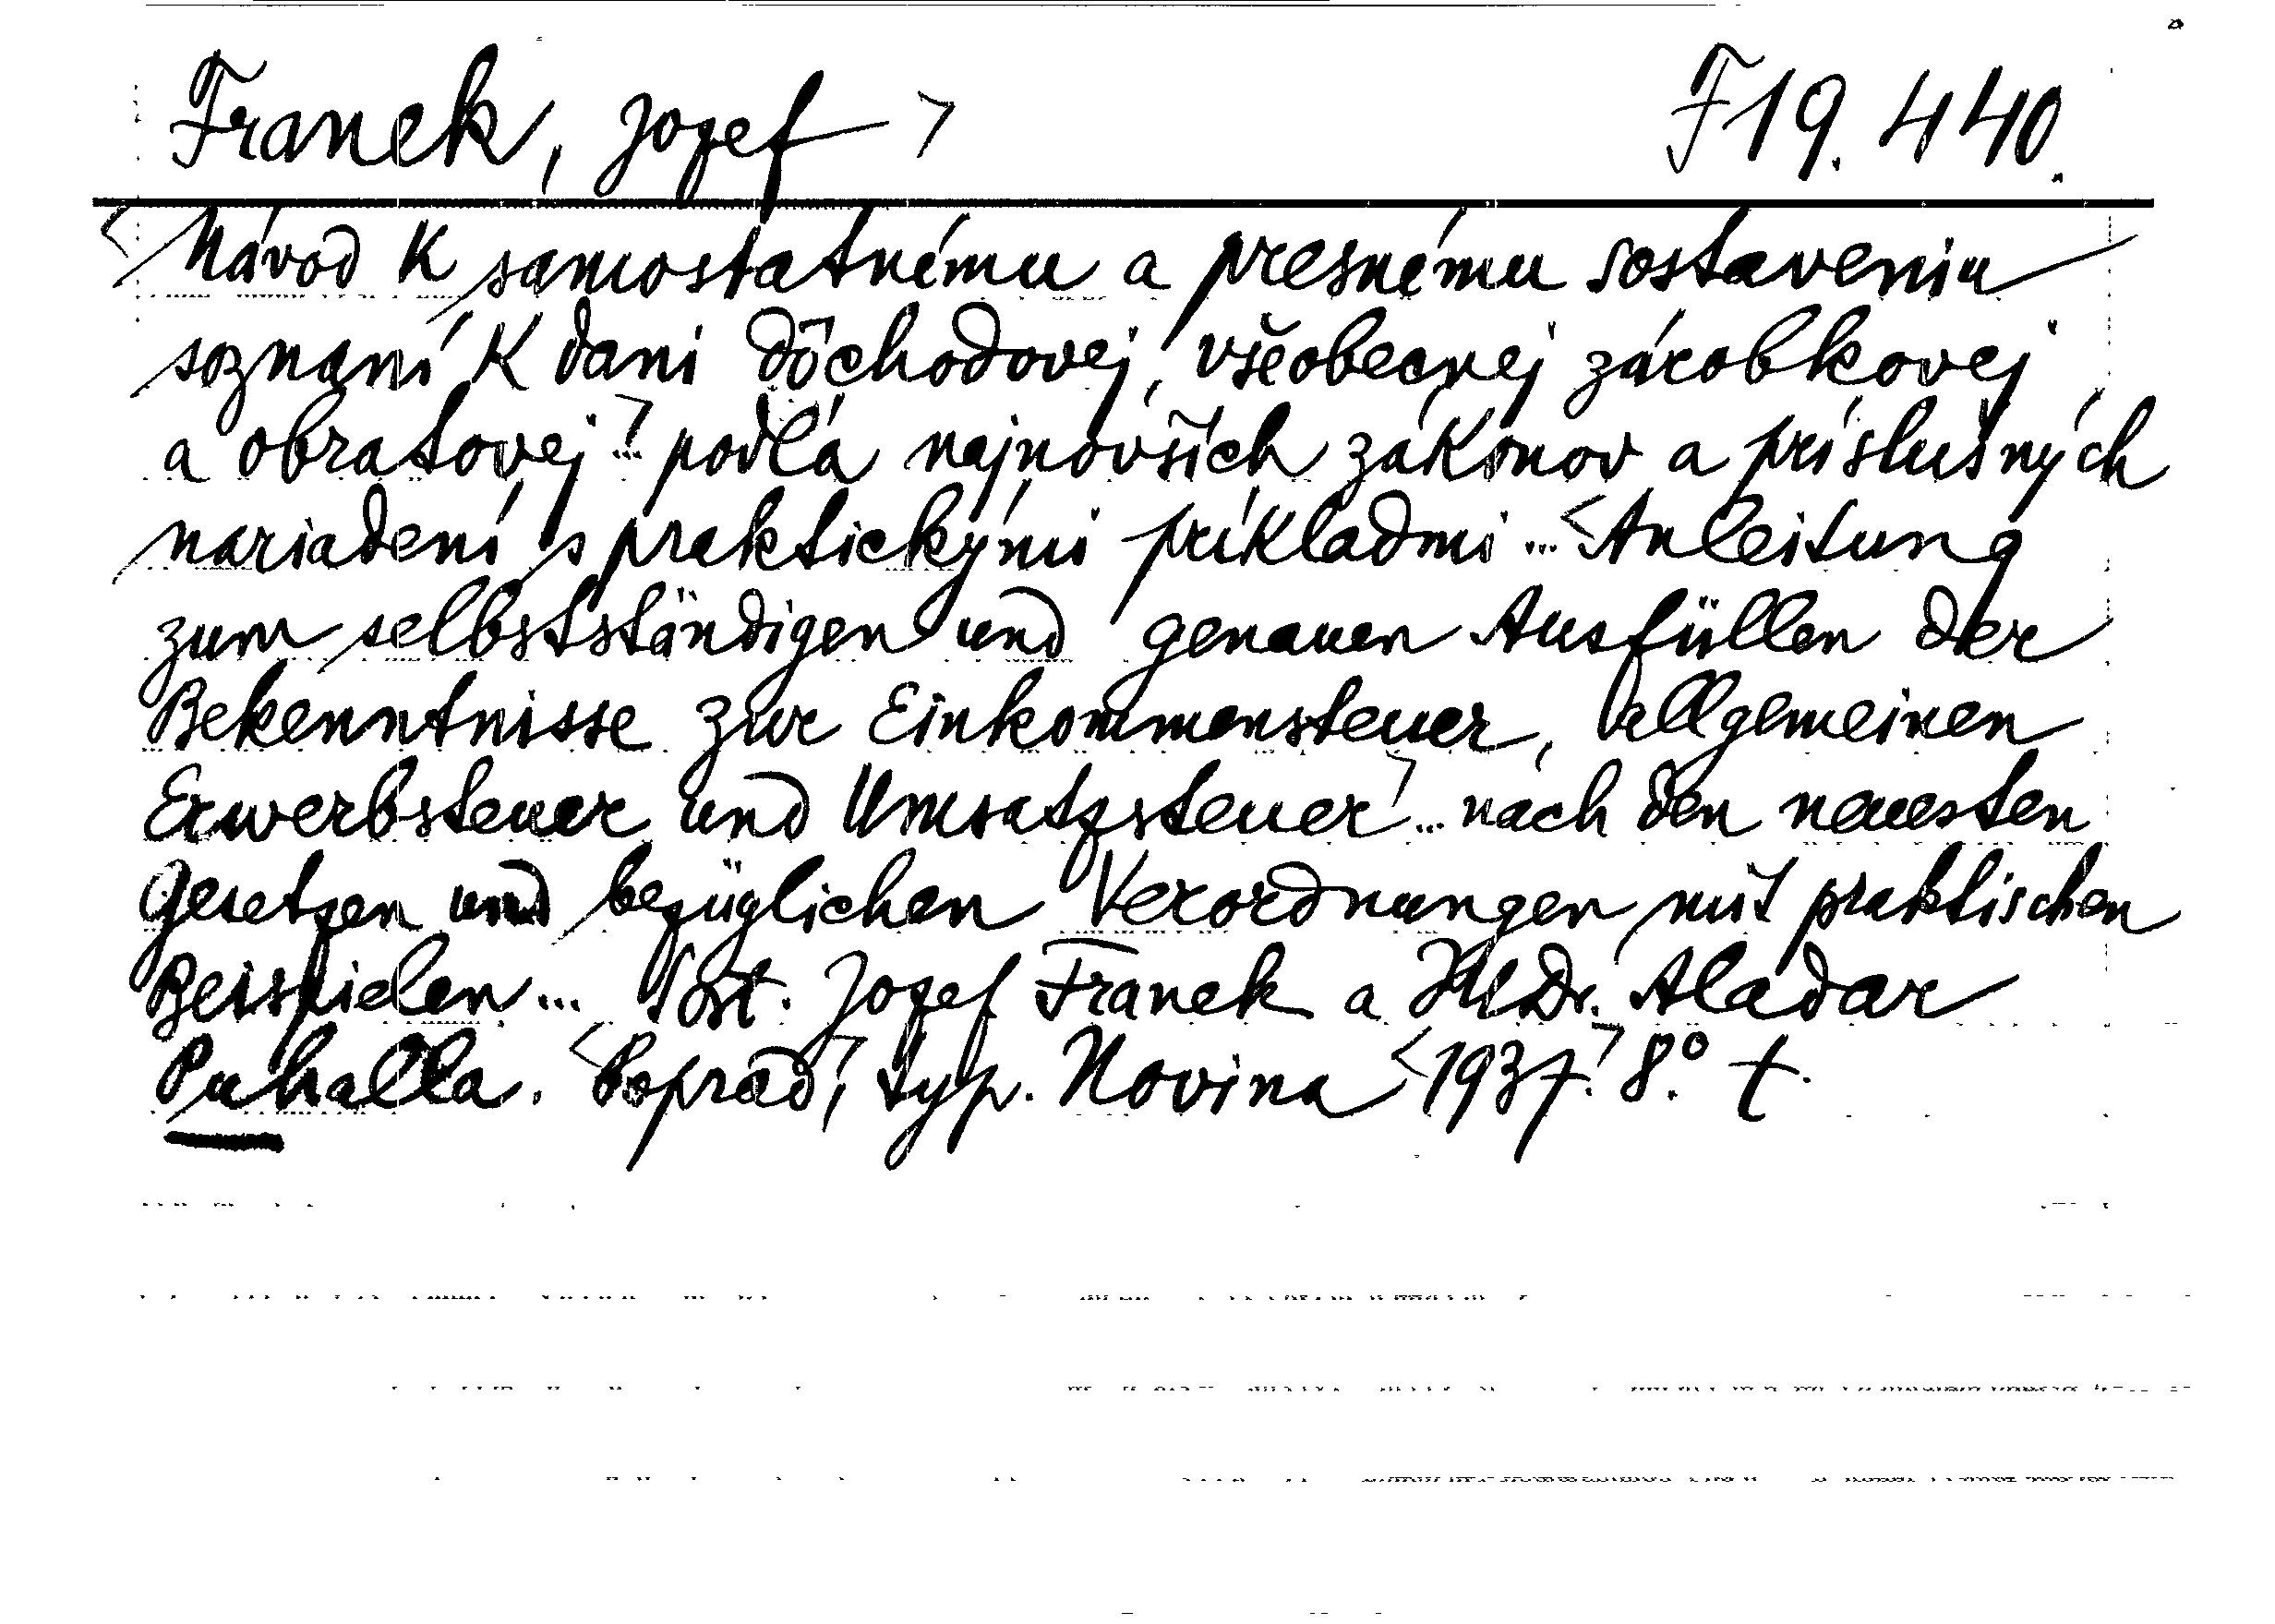 Franek, Jozef F19.440.
Návod k samostatnému a presnému sostaveniu
soznaní k dani dôchodovej, všeobecnej zárobkovej
a obratovej... podľa najnovších zákonov a príslušných
nariadení s praktickými príkladmi... Anleitung
zum selbstständigen und genauen Ausfüllen der
Bekenntnisse zur Einkommensteuer, allgemeinen
Erwerbsteuer und Umsatzsteuer... nach den neuesten
Gesetzen und bezüglichen Verordnungen mit praktischen
Beispielen... Sost. Jozef Franek a JUDr. Aladar
Puhalla. Poprad, typ. Novina 1937. 8.° t.